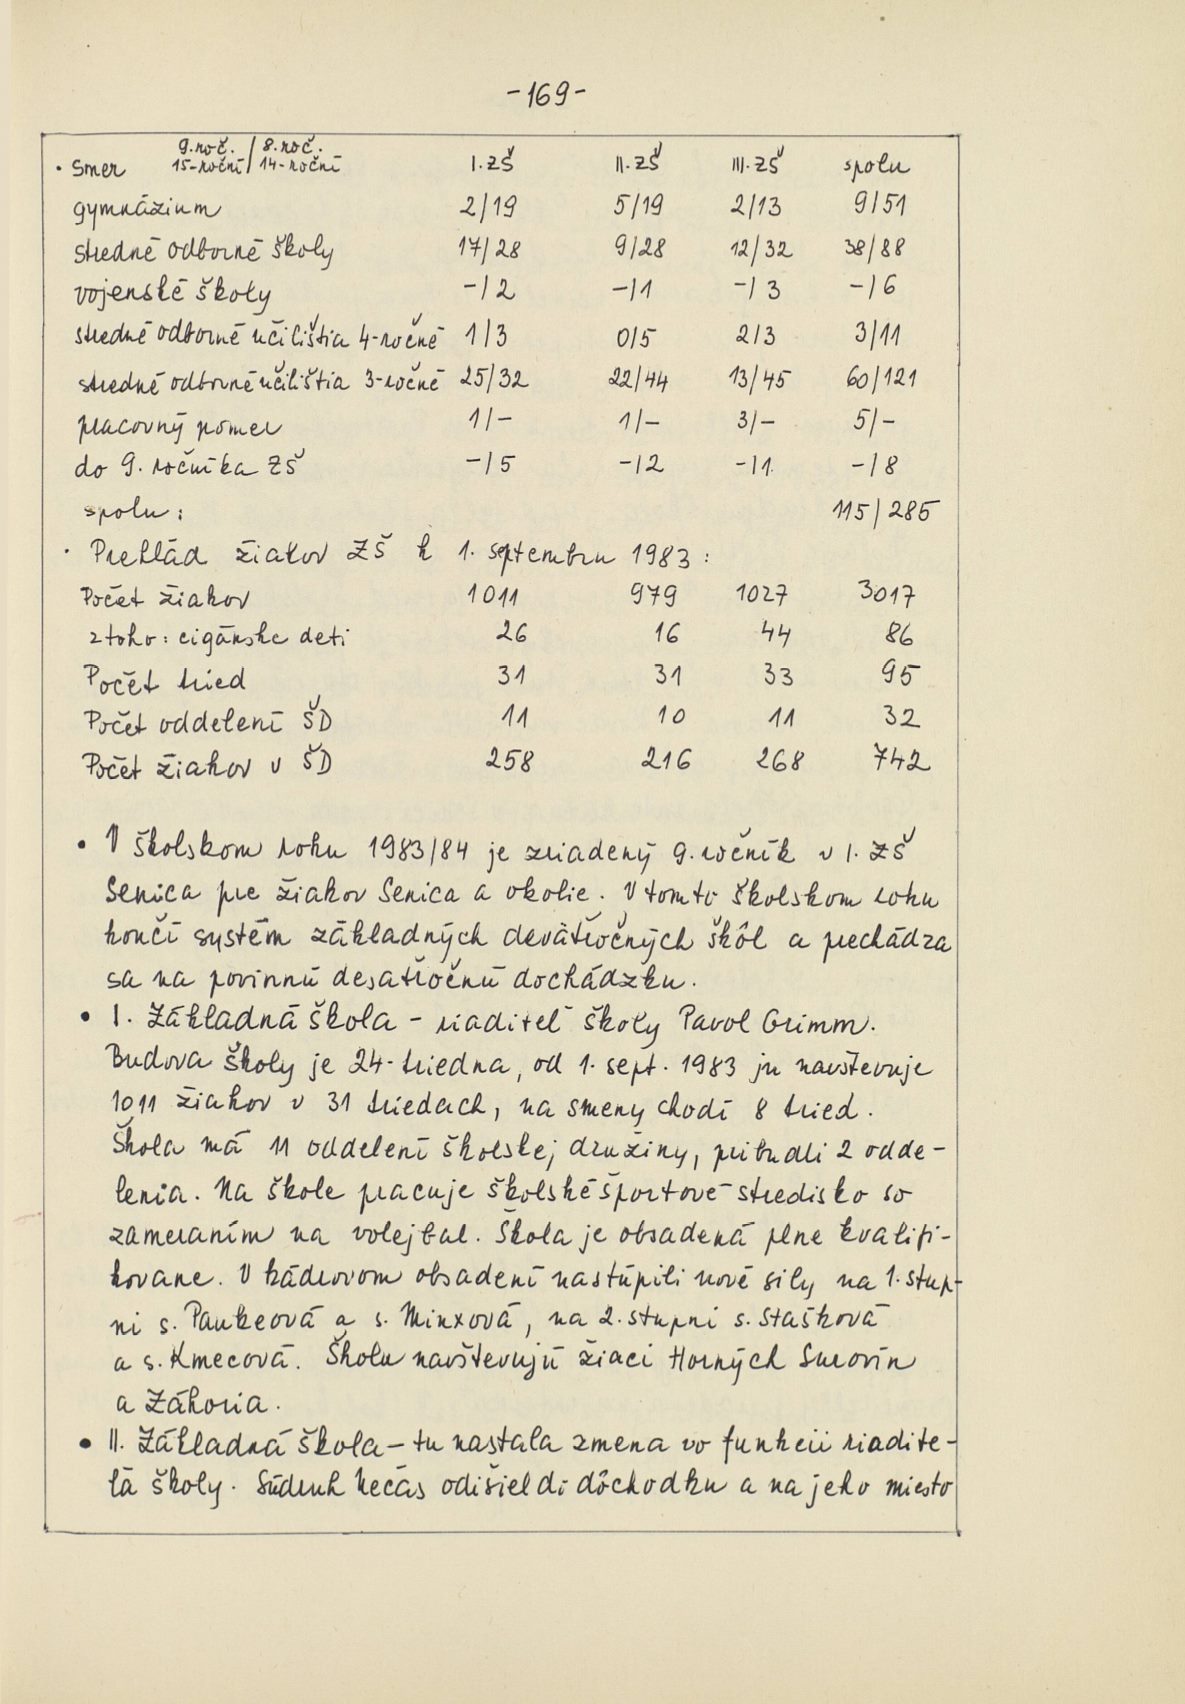 -169-
9. roč. / 8. roč.
• Smer 15-roční / 14-roční I. ZŠ II. ZŠ III. ZŠ spolu
gymnázium 2/19 5/19 2/13 9/51
stredné odborné školy 17/28 9/28 12/32 38/88
vojenské školy -/2 -/1 -/3 -/6
stredné odborné učilištia 4-ročné 1/3 0/5 2/3 3/11
stredné odborné učilištia 3-ročné 25/32 22/44 13/45 60/121
pracovný pomer 1/- 1/- 3/- 5/-
do 9. ročníka ZŠ -/5 -/2 -/1 -/8
spolu: 115/285
• Prehľad žiakov ZŠ k 1. septembru 1983:
Počet žiakov 1011 979 1027 3017
z toho: cigánske deti 26 16 44 86
Počet tried 31 31 33 95
Počet oddelení ŠD 11 10 11 32
Počet žiakov v ŠD 258 216 268 742
• V školskom roku 1983/84 je zriadený 9. ročník v I. ZŠ
Senica pre žiakov Senica a okolie. V tomto školskom roku
končí systém základných deväťročných škôl a prechádza
sa na povinnú desaťročnú dochádzku.
• I. Základná škola - riaditeľ školy Pavol Grimm.
Budova školy je 24-triedna, od 1. sept. 1983 ju navštevuje
1011 žiakov v 31 triedach, na smeny chodí 8 tried.
Škola má 11 oddelení školskej družiny, pribudli 2 odde-
lenia. Na škole pracuje školské športové stredisko so
zameraním na volejbal. Škola je obsadená plne kvalifi-
kovane. V kádrovom obsadení nastúpili nové sily na 1. stup-
ni s. Paukeová a s. Minxová, na 2. stupni s. Stašková
a s. Kmecová. Školu navštevujú žiaci Horných Surovín
a Záhoria.
• II. Základná škola - tu nastala zmena vo funkcii riadite-
ľa školy. Súdruh Nečas odišiel do dôchodku a na jeho miesto